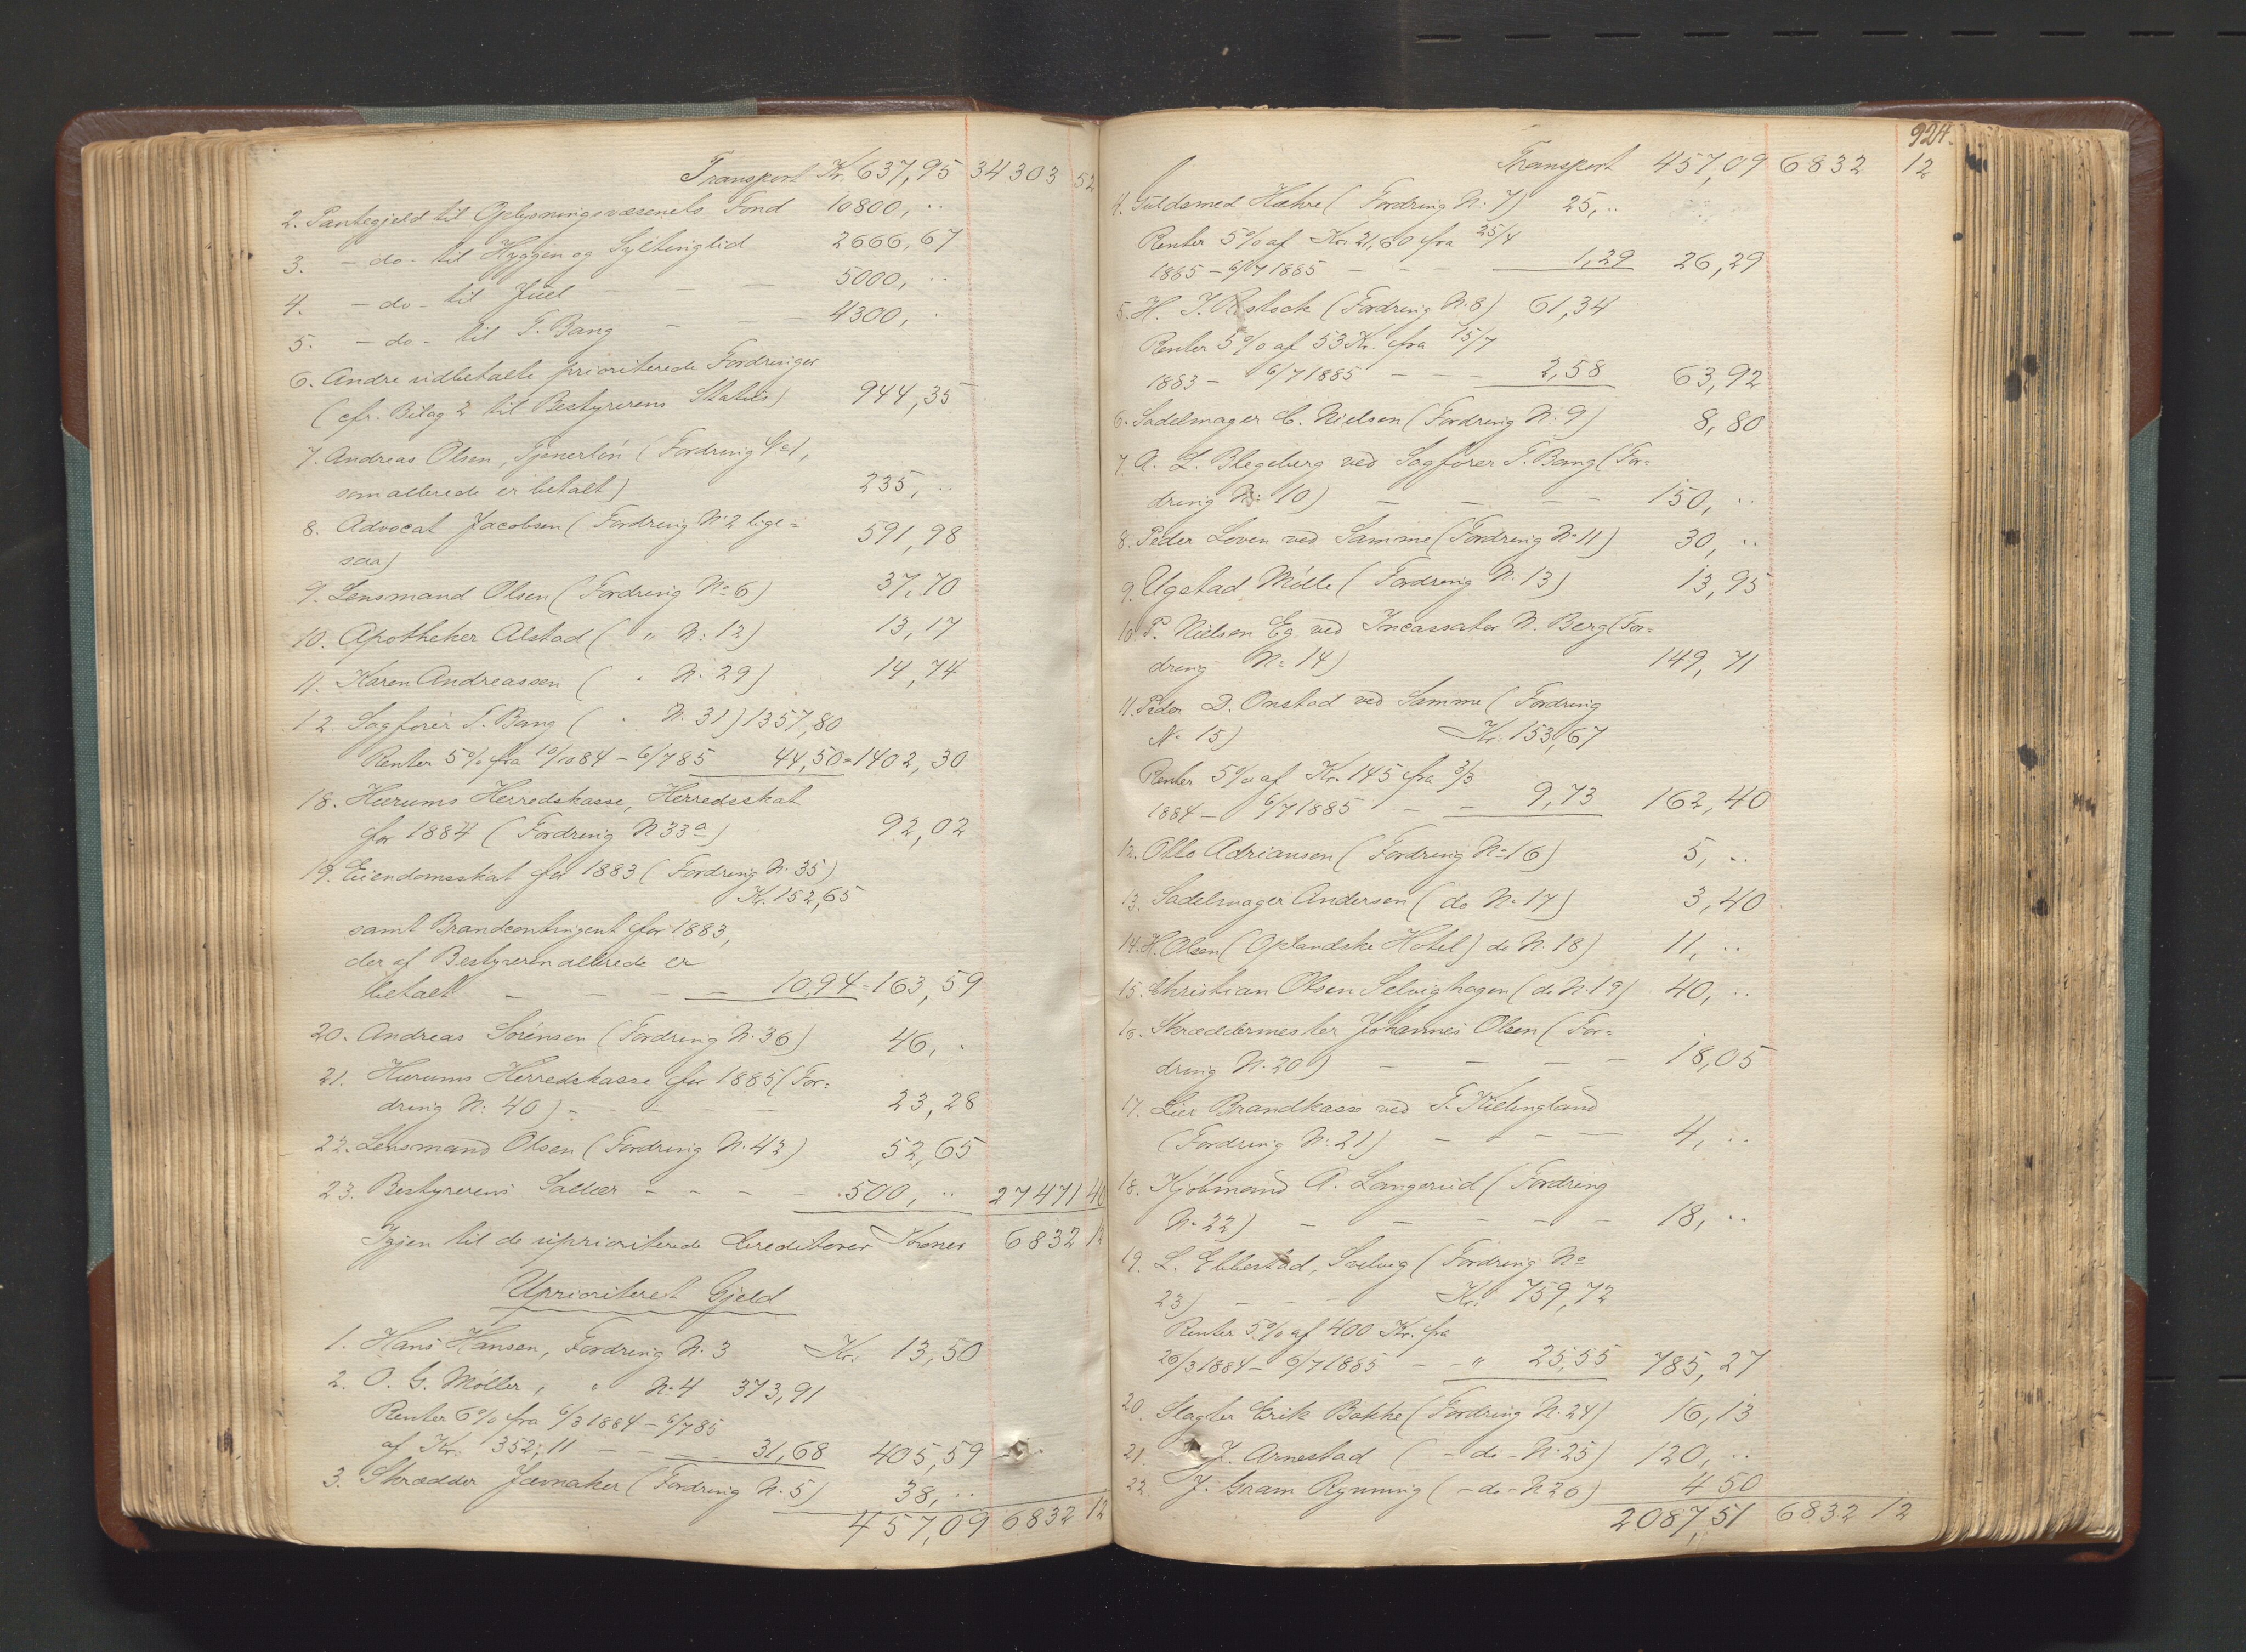 Transport Kr. 637,95 34303 52
2. Pantegjeld til Oplysningsvæsenets Fond 10800, ..
3. - do - til Hyggen og Sylteriglid 2666,67
4. - do - til Juel - - - 5000, ..
5. - do - til T. Bang - - - 4300, .
6. Andre udbetalte prioriterede Fordringer
(cfr. Bilag 2 til Bestyrerens Status) 944,35
7. Andreas Olsen, Tjenerløn (Fordring No 1,
som allerede er betalt) 235, ..
8. Advocat Jacobsen (Fordring No 2 lige=
saa) 591,98
9. Lensmand Olsen (Fordring No 6) 37,70
10. Apotheker Alstad ( " N: 12) 13,17
11. Karen Andreassen ( " N. 29) 14,74
12. Sagfører T. Bang ( " N. 31) 1357,80
Renter 5% fra 10/10 84 - 6/7 85 44,50 = 1402,30
18. Hurums Herredskasse, Herredsskat
for 1884 (Fordring N 33a) 92,02
19. Eiendomsskat for 1883 (Fordring N. 35)
Kr. 152,65
samt Brandcontingent for 1883,
der af Bestyreren allerede er
betalt - - - - 10,94 = 163,59
20. Andreas Sørensen (Fordring N. 36) 46, .
21. Hurums Herredskasse for 1885 (For=
dring N: 40) - - - - 23,28
22. Lensmand Olsen (Fordring N. 42) 52,65
23. Bestyrerens Salær - - - - 500, .. 27471 40
Igjen til de uprioriterede Creditorer Kroner 6832 12
Uprioriteret Gjeld
1. Hans Hansen, Fordring N. 3 Kr. 13,50
2. O. G. Møller, " N. 4 373,91
Renter 6% fra 6/3 1884 - 6/7 85
af Kr. 352,11 - - - 31,68 405,59
3. Skrædder Jarmaker (Fordring N. 5) 38, ..
457,09 6832 12
924.
Transport 457,09 6832 12
4. Guldsmed Hæhre (Fordring N: 7) 25, ..
Renter 5% af Kr. 21,60 fra 25/4
1885 - 6/7 1885 - - - 1,29 26,29
5. H. J. Rostock (Fordring N. 8) 61,34
Renter 5% af 53 Kr. fra 15/7
1883 - 6/7 1885 - - - 2,58 63,92
6. Sadelmager C. Nielsen (Fordring N: 9) 8,80
7. A. L. Blegeberg ved Sagfører T. Bang (For=
dring N: 10) - - - - 150, ..
8. Peder Loven ved Samme (Fordring No 11) 30, ..
9. Ugstad Mølle (Fordring N. 13) 13,95
10. P. Nielsen Eg ved Incassator N. Berg (For=
dring No 14) 149,71
11. Peder D. Onstad ved Samme (Fordring
No 15) Kr. 153,67
Renter 5% af Kr. 145 fra 3/3
1884 - 6/7 1885 - - 9,73 162,40
12. Otto Adriansen (Fordring No 16) 5, ..
13. Sadelmager Andersen (do No 17) 3,40
14. H. Olsen (Oplandske Hotel) do N: 18) 11, ..
15. Christian Olsen Selvighagen (do N. 19) 40, ..
16. Skræddermester Johannes Olsen (For=
dring N. 20) - - - - 18,05
17. Lier Brandkasse ved T. Kielingland
(Fordring N: 21) - - - - 4, ..
18. Kjøbmand A. Langerud (Fordring
No 22) - - - - - - 18, ..
19. L. Ebbestad, Svelvig (Fordring No
23) - - - Kr. 759,72
Renter 5% af 400 Kr. fra
26/3 1884 - 6/7 1885 - - " 25,55 785,27
20. Slagter Erik Bakke (Fordring N. 24) 16,13
21. J. Arnestad ( - do - N. 25) 120, ..
22. J. Gram Rynning ( - do - N 26) 4 50
2087,51 6832 12